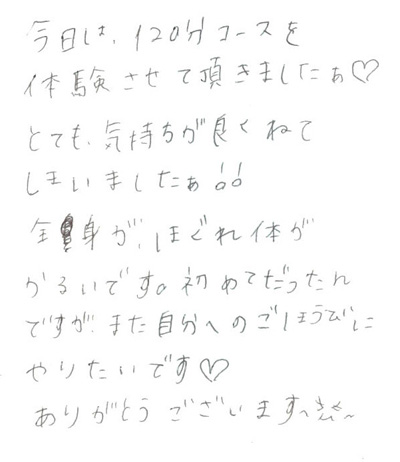 今日は、120分コースを
体験させて頂きましたぁ♡
とても、気持ちが良くねて
しまいましたぁ!!
全身が、ほぐれ体が
かるいです。初めてだったん
ですが、また自分へのごほうびに
やりたいです♡
ありがとうございます